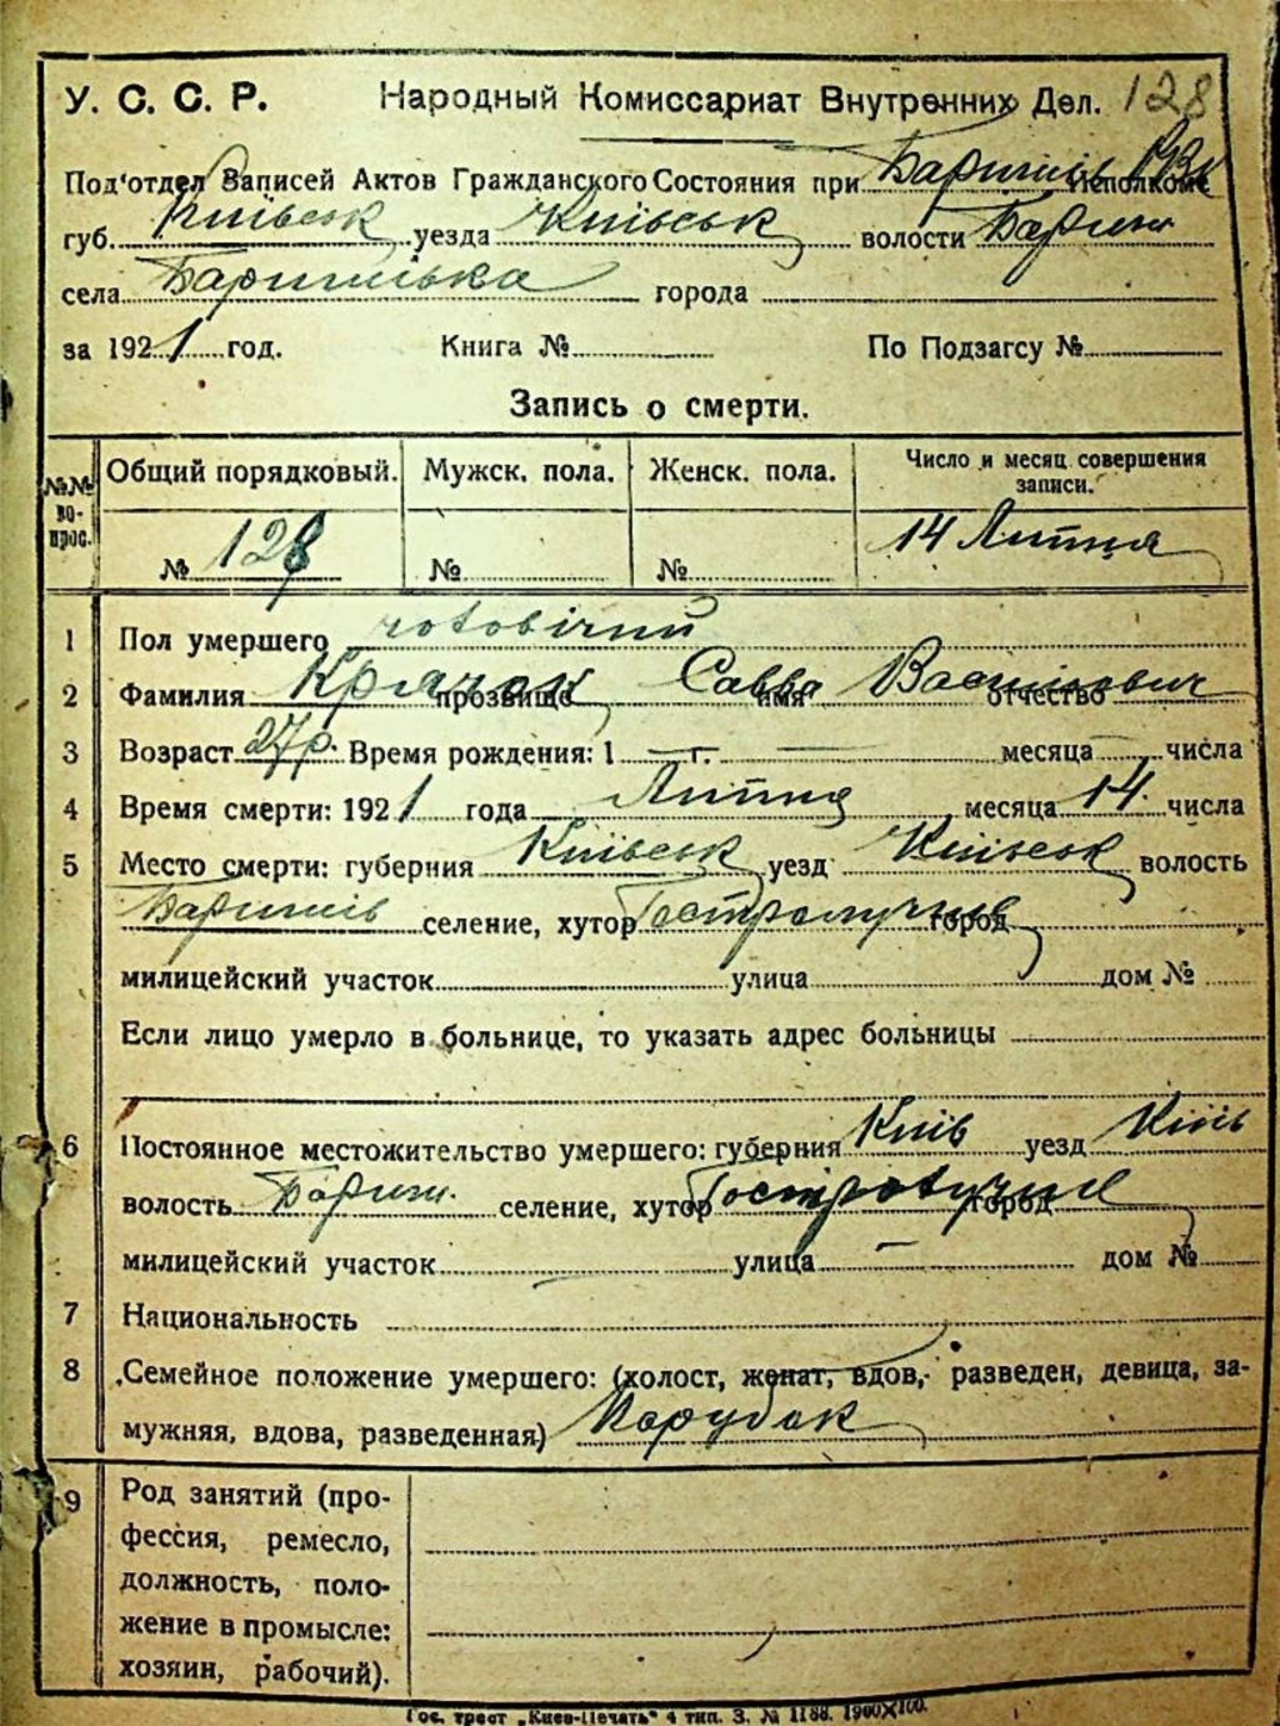 У. С. С. Р. Народный Комиссариат Внутренних Дел. 128
Под'отдел Записей Актов Гражданского Состояния при Баришів Исполкоме
губ. Київськ уезда Київськ волости Бариш
села Баришівка города
за 1921 год. Книга № По Подзагсу №
Запись о смерти.
№№ во-прос. Общий порядковый. Мужск. пола. Женск. пола. Число и месяц совершения записи.
№ 128 № № 14 Липня
1 Пол умершего чоловічий
2 Фамилия Крячок прозвище Савва имя Васильович отчество
3 Возраст 27 р. Время рождения: 1 — г. — месяца — числа
4 Время смерти: 1921 года Липня месяца 14 числа
5 Место смерти: губерния Київськ уезд Київськ волость
Баришів селение, хутор Гостролуччє город
милицейский участок улица дом №
Если лицо умерло в больнице, то указать адрес больницы
6 Постоянное местожительство умершего: губерния Київ уезд Київ
волость Бариш. селение, хутор Гостролуччє город
милицейский участок улица — дом №
7 Национальность
8 Семейное положение умершего: (холост, женат, вдов, разведен, девица, за-
мужняя, вдова, разведенная) Парубок
9 Род занятий (про-
фессия, ремесло,
должность, поло-
жение в промысле:
хозяин, рабочий).
Гос. трест „Киев-Печать" 4 тип. З. № 1188. 1900X100.